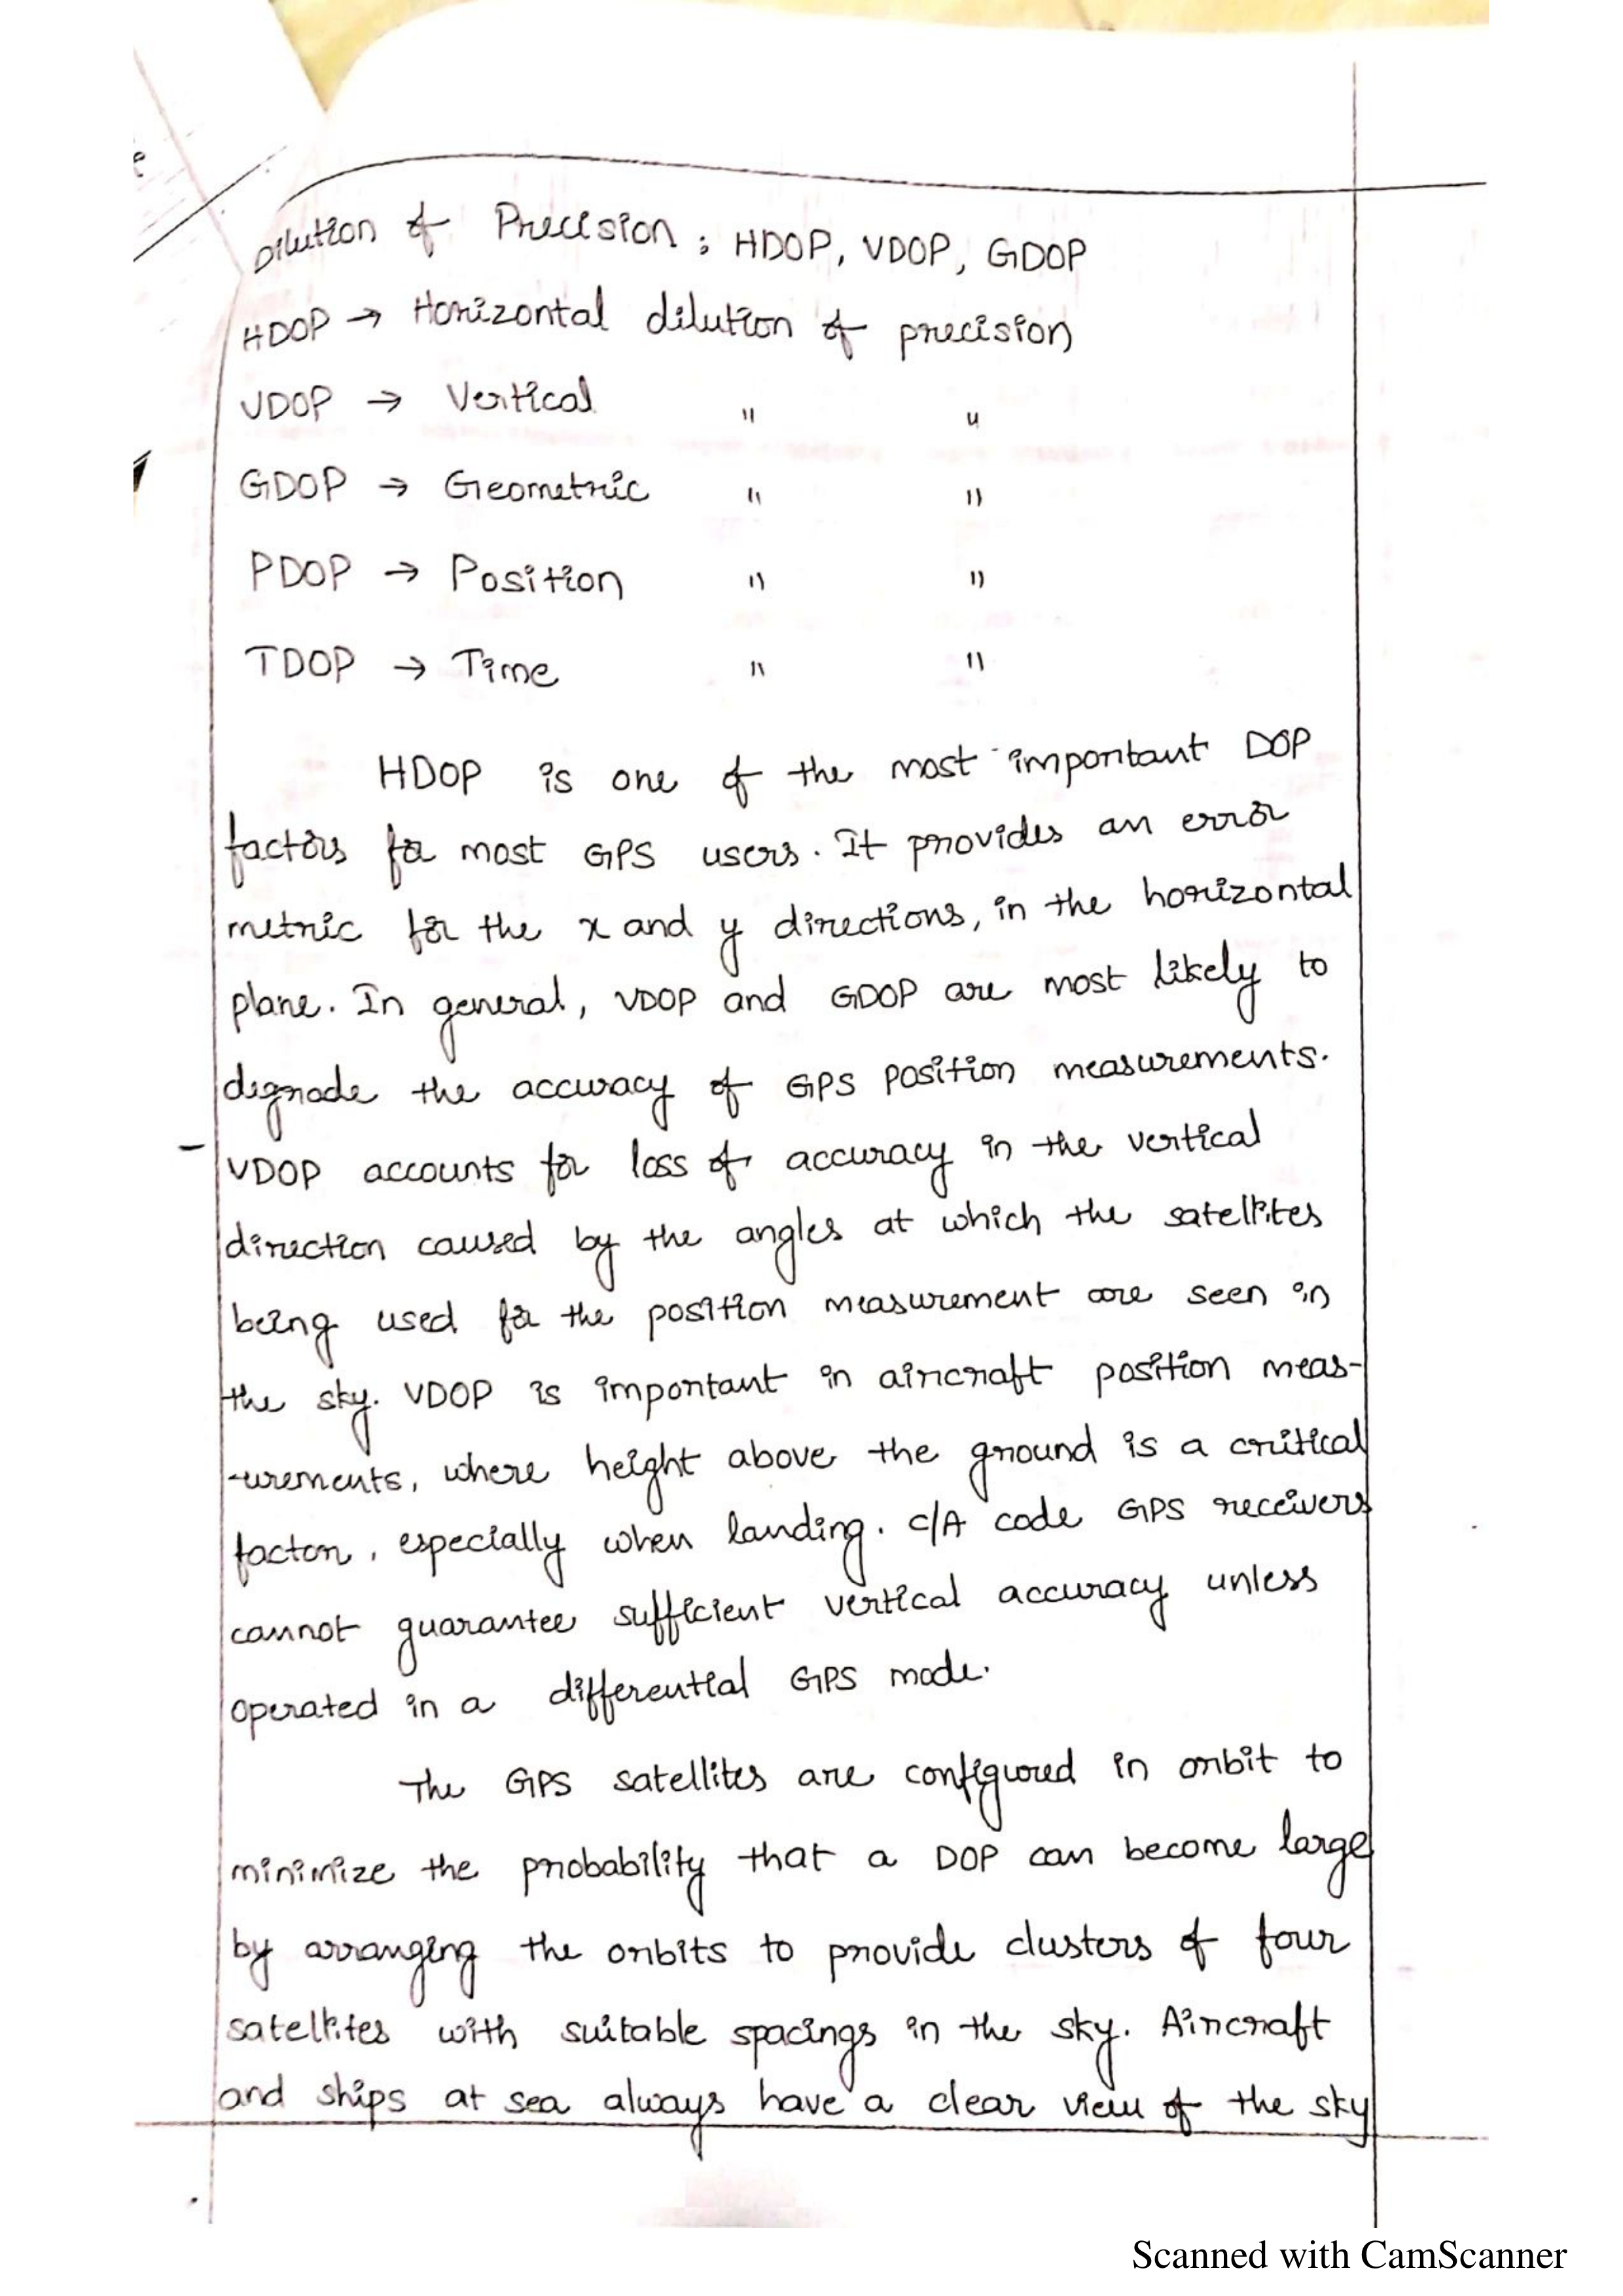 Dilution of Precision : HDOP, VDOP, GDOP
HDOP → Horizontal dilution of precision
VDOP → Vertical " "
GDOP → Geometric " "
PDOP → Position " "
TDOP → Time " "
HDOP is one of the most important DOP
factors for most GPS users. It provides an error
metric for the x and y directions, in the horizontal
plane. In general, VDOP and GDOP are most likely to
degrade the accuracy of GPS position measurements.
- VDOP accounts for loss of accuracy in the vertical
direction caused by the angles at which the satellites
being used for the position measurement are seen in
the sky. VDOP is important in aircraft position meas-
-urements, where height above the ground is a critical
factor, especially when landing. C/A code GPS receivers
cannot guarantee sufficient vertical accuracy unless
operated in a differential GPS mode.
The GPS satellites are configured in orbit to
minimize the probability that a DOP can become large
by arranging the orbits to provide clusters of four
satellites with suitable spacings in the sky. Aircraft
and ships at sea always have a clear view of the sky
Scanned with CamScanner